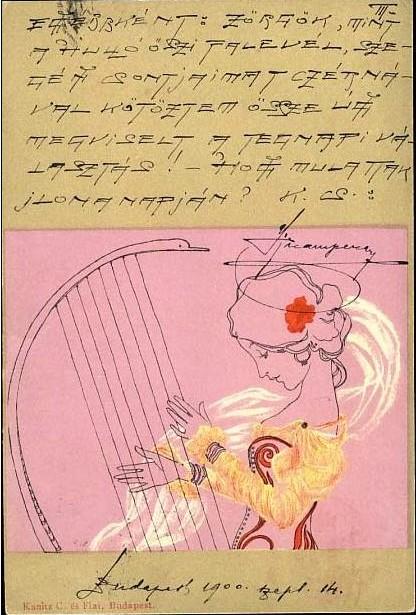 III.
EGYÉBBKÉNT: ZÖRGÖK, MINT
A HULLÓ ŐSZI FALEVÉL, SZE-
GÉNY CSONTJAIMAT CZÉRNÁ-
VAL KÖTÖZTEM ÖSSZE ÚGY
MEGVISELT A TEGNAPI VÁ-
LASZTÁS! – HOGY MULATTAK
JLONA NAPJÁN? K. CS.:
Budapest 1900. szept. 14.
Kanitz C. és Fiai, Budapest.